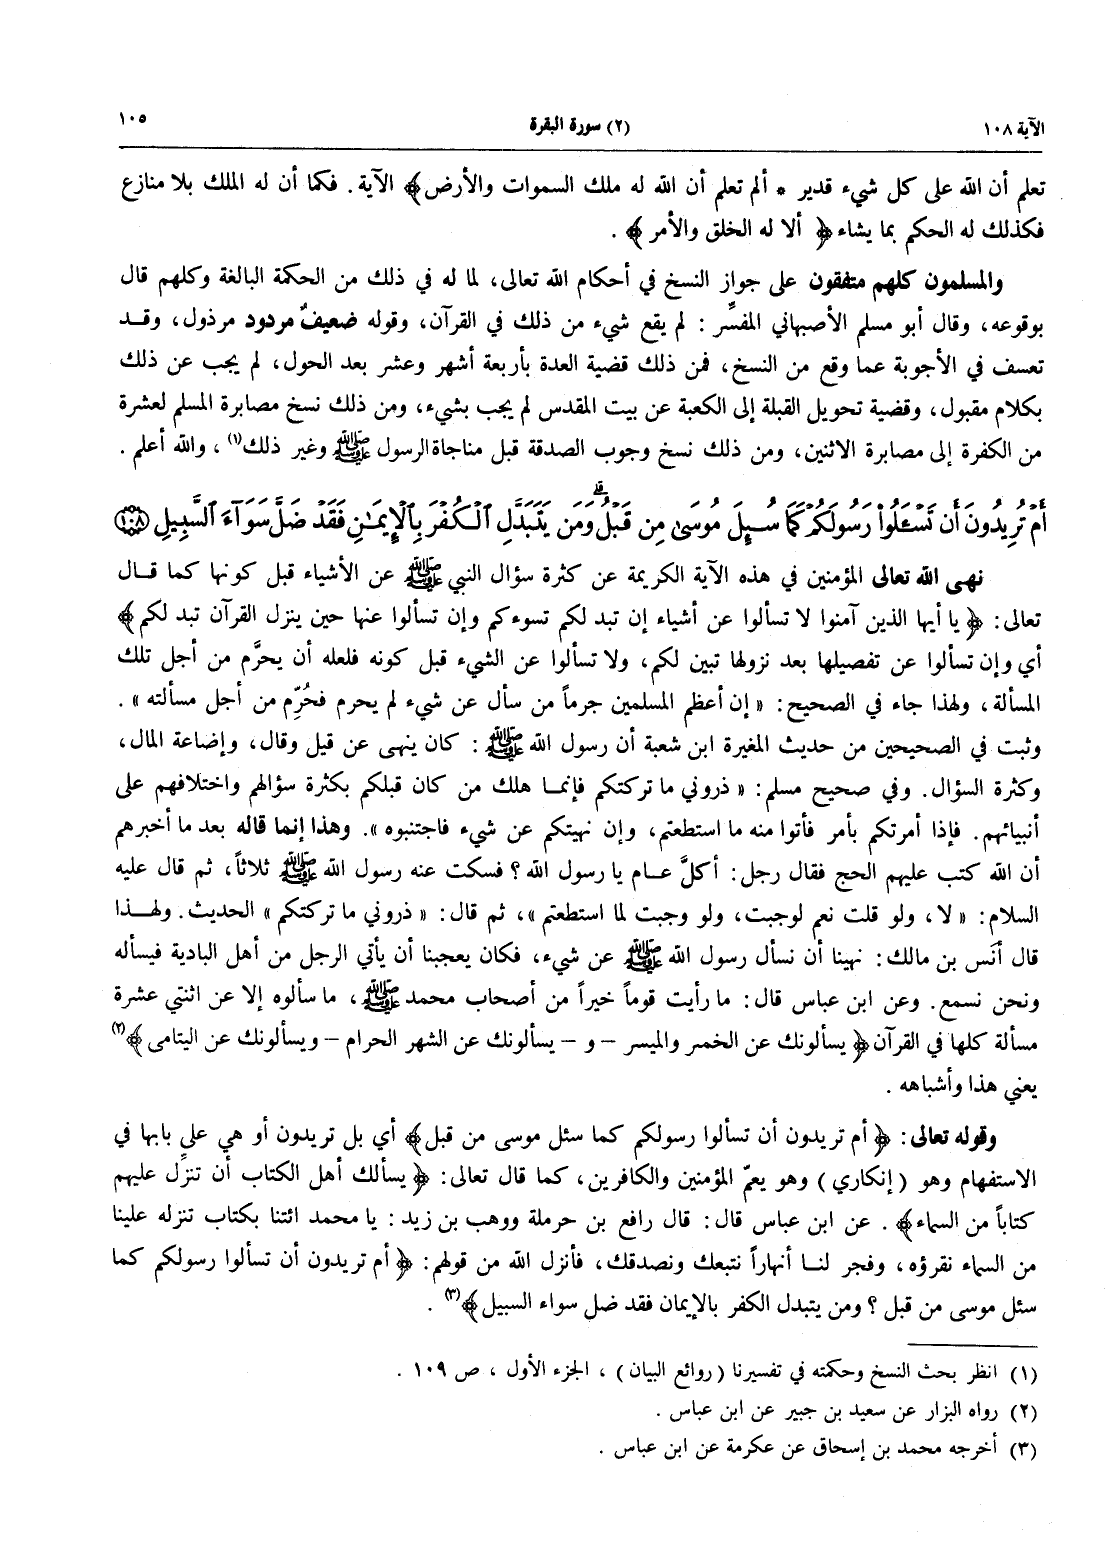 الآية ١٠٨ (٢) سورة البقرة ١٠٥
تعلم أن الله على كل شيء قدير * ألم تعلم أن الله له ملك السموات والأرض﴾ الآية. فكما أن له الملك بلا منازع
فكذلك له الحكم بما يشاء ﴿ ألا له الخلق والأمر ﴾ .
والمسلمون كلهم متفقون على جواز النسخ في أحكام الله تعالى، لما له في ذلك من الحكمة البالغة وكلهم قال
بوقوعه، وقال أبو مسلم الأصبهاني المفسِّر : لم يقع شيء من ذلك في القرآن، وقوله ضعيفٌ مردود مرذول، وقـد
تعسف في الأجوبة عما وقع من النسخ، فمن ذلك قضية العدة بأربعة أشهر وعشر بعد الحول، لم يجب عن ذلك
بكلام مقبول، وقضية تحويل القبلة إلى الكعبة عن بيت المقدس لم يجب بشيء، ومن ذلك نسخ مصابرة المسلم لعشرة
من الكفرة إلى مصابرة الاثنين، ومن ذلك نسخ وجوب الصدقة قبل مناجاة الرسول ﷺ وغير ذلك(١)، والله أعلم .
أَمْ تُرِيدُونَ أَن تَسْـَٔلُواْ رَسُولَكُمْ كَمَا سُئِلَ مُوسَىٰ مِن قَبْلُ ۗ وَمَن يَتَبَدَّلِ ٱلْكُفْرَ بِٱلْإِيمَـٰنِ فَقَدْ ضَلَّ سَوَآءَ ٱلسَّبِيلِ ﴿١٠٨﴾
نهـى الله تعالى المؤمنين في هذه الآية الكريمة عن كثرة سؤال النبي ﷺ عن الأشياء قبل كونها كما قـال
تعالى: ﴿ يا أيها الذين آمنوا لا تسألوا عن أشياء إن تبد لكم تسوءكم وإن تسألوا عنها حين ينزل القرآن تبد لكم﴾
أي وإن تسألوا عن تفصيلها بعد نزولها تبين لكم، ولا تسألوا عن الشيء قبل كونه فلعله أن يحرَّم من أجل تلك
المسألة، ولهذا جاء في الصحيح: « إن أعظم المسلمين جرماً من سأل عن شيء لم يحرم فحُرِّم من أجل مسألته » .
وثبت في الصحيحين من حديث المغيرة ابن شعبة أن رسول الله ﷺ : كان ينهى عن قيل وقال، وإضاعة المال،
وكثرة السؤال. وفي صحيح مسلم: « ذروني ما تركتكم فإنمـا هلك من كان قبلكم بكثرة سؤالهم واختلافهم على
أنبيائهم. فإذا أمرتكم بأمر فأتوا منه ما استطعتم، وإن نهيتكم عن شيء فاجتنبوه ». وهذا إنما قاله بعد ما أخبرهم
أن الله كتب عليهم الحج فقال رجل: أكلَّ عـام يا رسول الله؟ فسكت عنه رسول الله ﷺ ثلاثاً، ثم قال عليه
السلام: « لا، ولو قلت نعم لوجبت، ولو وجبت لما استطعتم »، ثم قال: « ذروني ما تركتكم » الحديث. ولهـذا
قال أنَس بن مالك: نهينا أن نسأل رسول الله ﷺ عن شيء، فكان يعجبنا أن يأتي الرجل من أهل البادية فيسأله
ونحن نسمع. وعن ابن عباس قال: ما رأيت قوماً خيراً من أصحاب محمد ﷺ، ما سألوه إلا عن اثنتي عشرة
مسألة كلها في القرآن ﴿ يسألونك عن الخمر والميسر – و – يسألونك عن الشهر الحرام – ويسألونك عن اليتامى ﴾(٢)
يعني هذا وأشباهه .
وقوله تعالى: ﴿ أم تريدون أن تسألوا رسولكم كما سئل موسى من قبل﴾ أي بل تريدون أو هي على بابها في
الاستفهام وهو (إنكاري) وهو يعمّ المؤمنين والكافرين، كما قال تعالى: ﴿ يسألك أهل الكتاب أن تنزِّل عليهم
كتاباً من السماء﴾ . عن ابن عباس قال: قال رافع بن حرملة ووهب بن زيد: يا محمد ائتنا بكتاب تنزله علينا
من السماء نقرؤه، وفجر لنـا أنهاراً نتبعك ونصدقك، فأنزل الله من قولهم: ﴿ أم تريدون أن تسألوا رسولكم كما
سئل موسى من قبل ؟ ومن يتبدل الكفر بالإيمان فقد ضل سواء السبيل ﴾(٣) .
(١) انظر بحث النسخ وحكمته في تفسيرنا (روائع البيان) ، الجزء الأول ، ص ١٠٩ .
(٢) رواه البزار عن سعيد بن جبير عن ابن عباس .
(٣) أخرجه محمد بن إسحاق عن عكرمة عن ابن عباس .